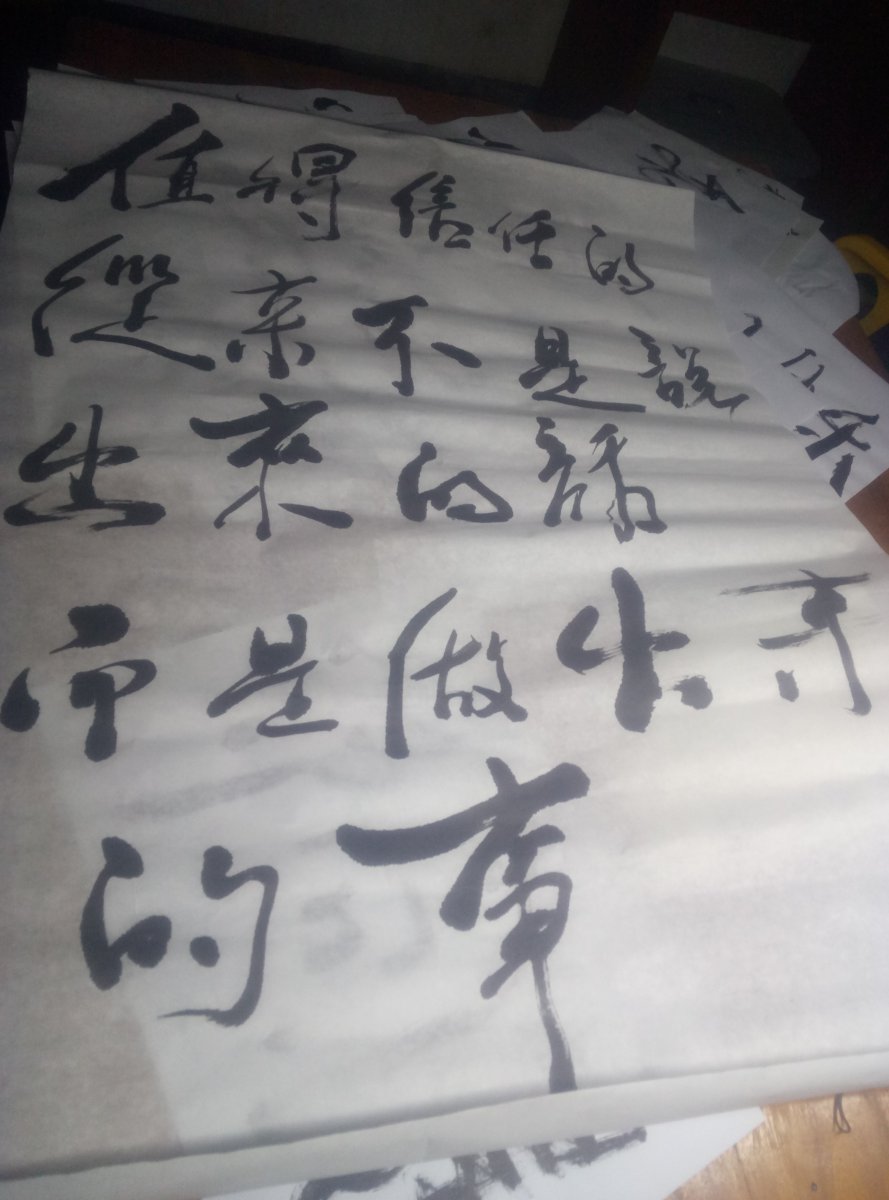 值得信任的
從來不是說
出來的話
而是做出來
的事